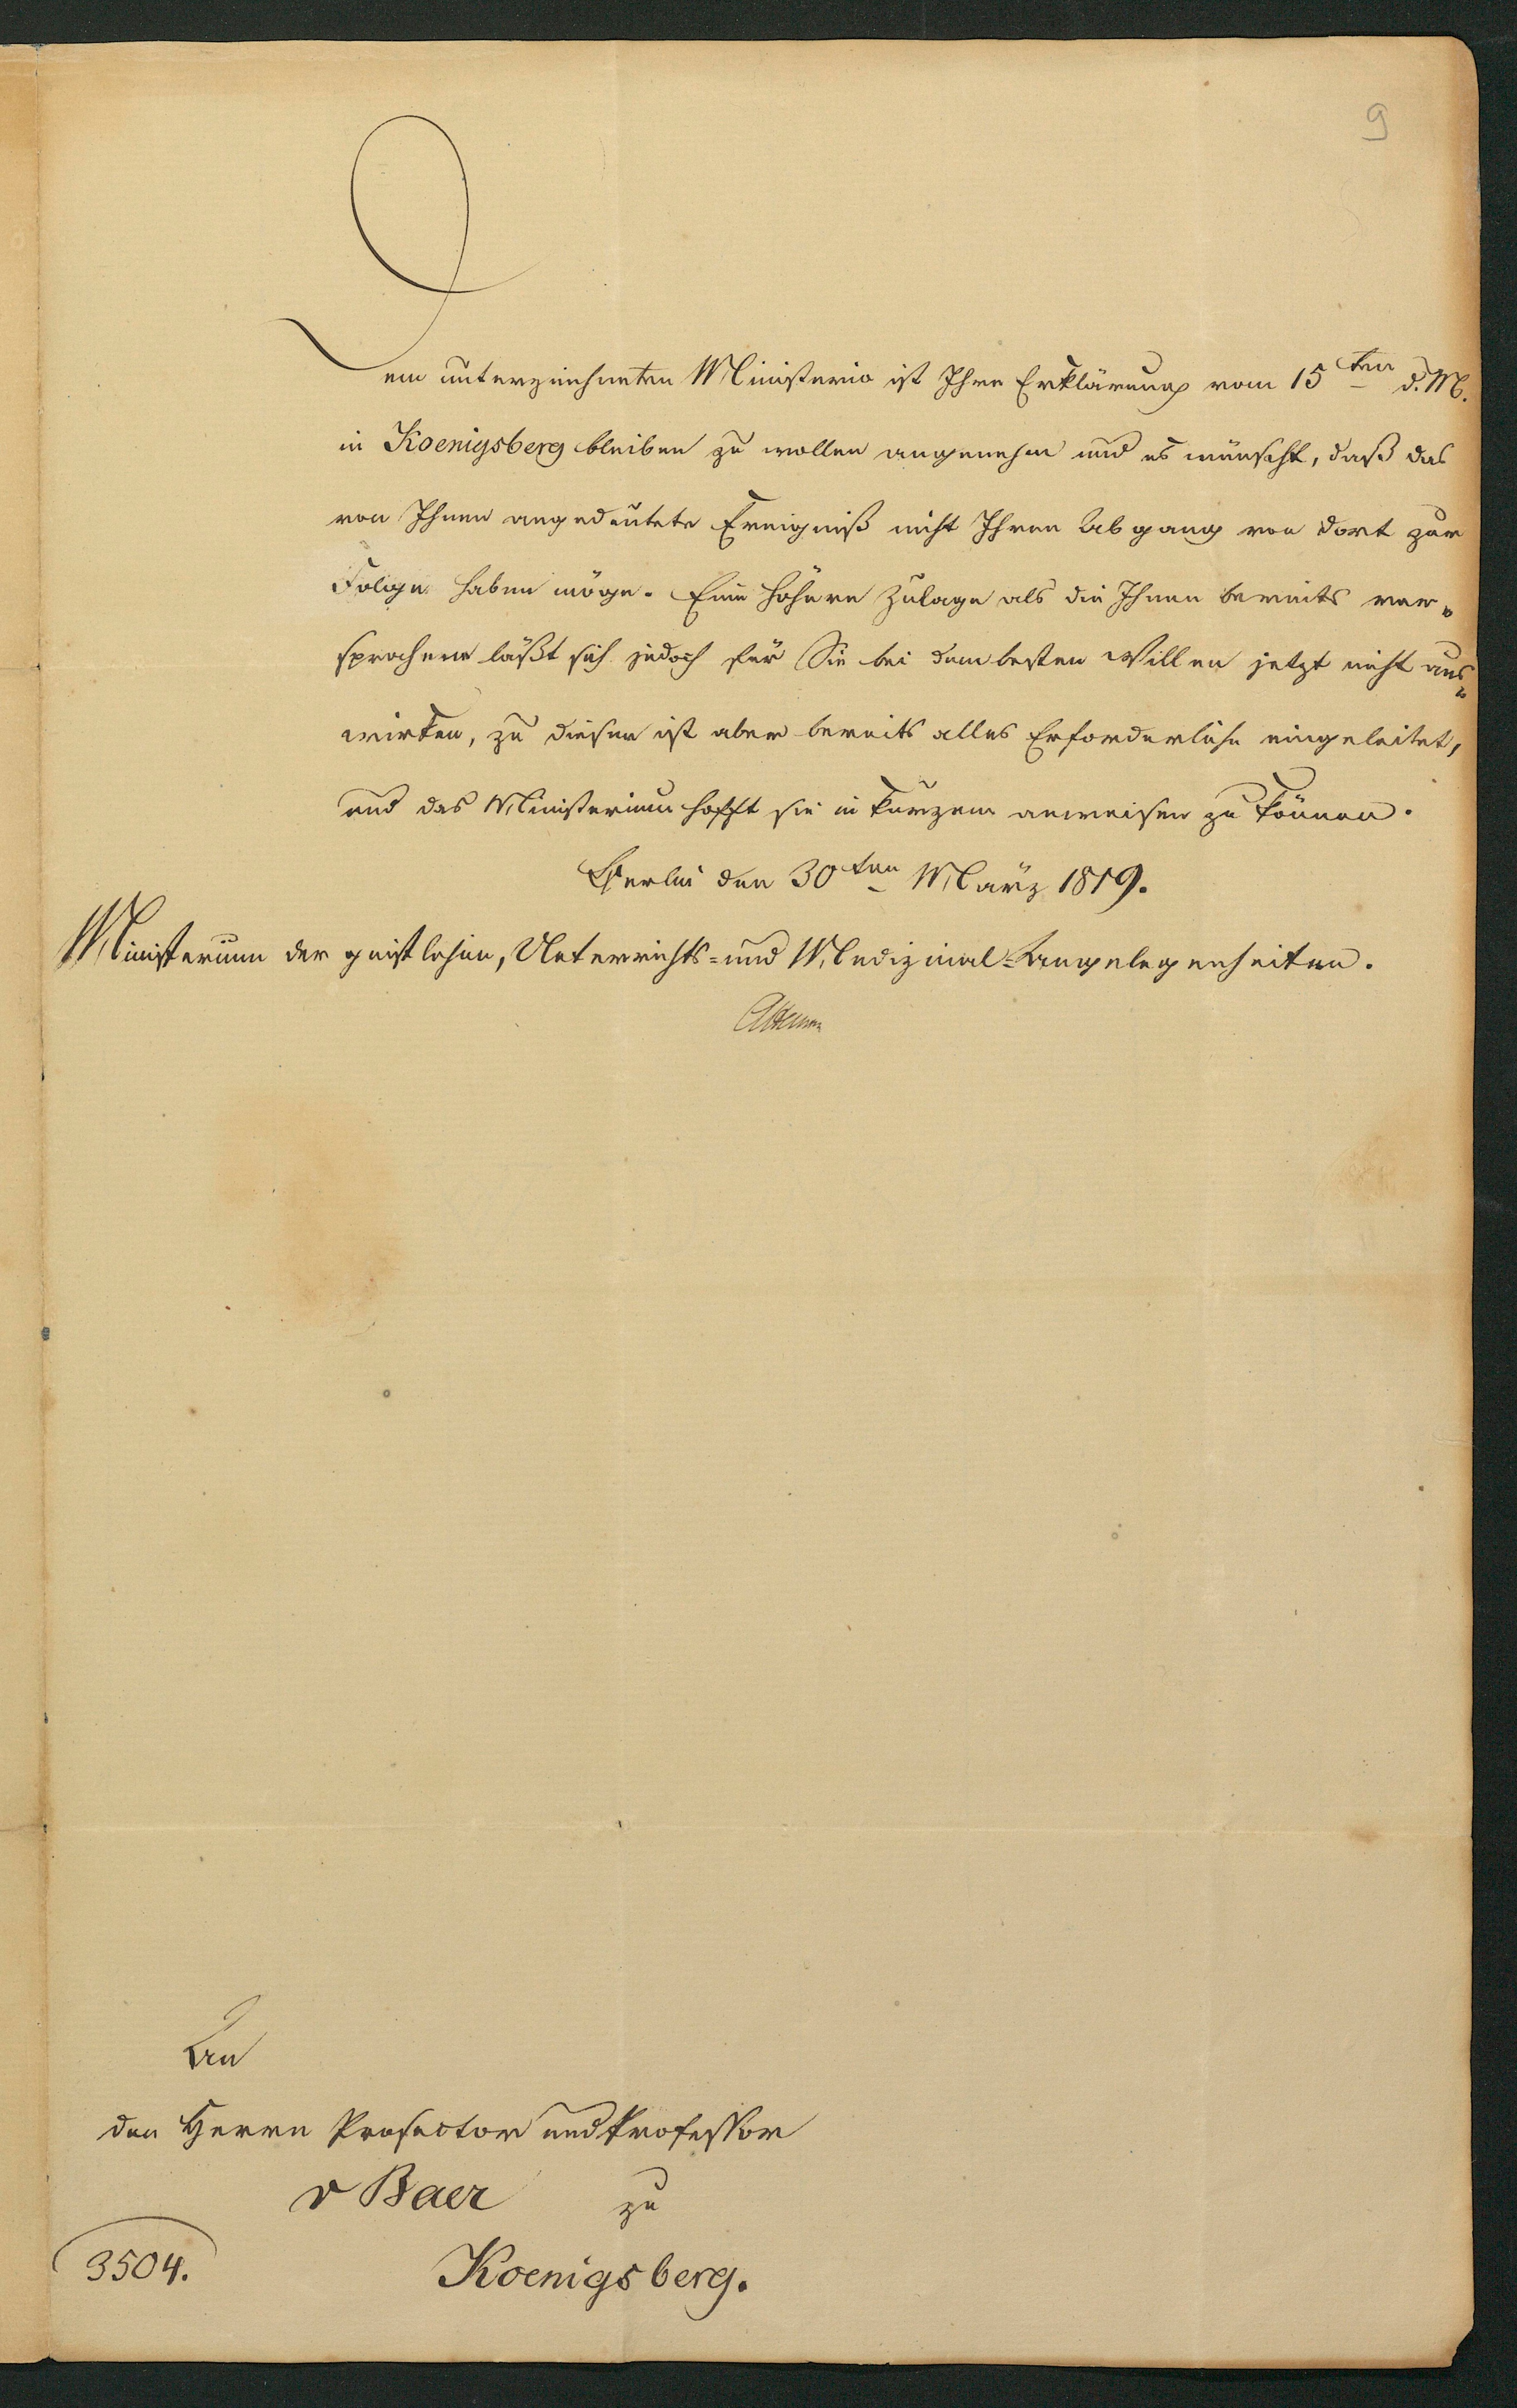 9
Dem unterzeichneten Ministerio ist Ihre Erklärung vom 15ten d. M.
in Koenigsberg bleiben zu wollen angenehm und es wünscht, daß das
von Ihnen angedeutete Ereigniß nicht Ihren Abgang von dort zur
Folge haben möge. Eine höhere Zulage als die Ihnen bereits ver-
sprochene läßt sich jedoch für Sie bei dem besten Willen jetzt nicht aus-
wirken, zu dieser ist aber bereits alles Erforderliche eingeleitet,
und das Ministerium hofft sie in kurzem anweisen zu können.
Berlin den 30ten März 1819.
Ministerium der geistlichen, Unterrichts- und Medizinal-Angelegenheiten.
Altenstein
An
den Herrn Prosector und Professor
v Baer zu
3504. Koenigsberg.